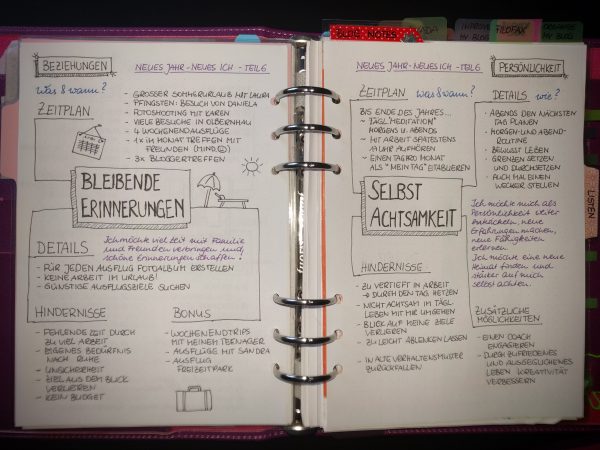 BLOG NOTES
IMPROVE
MY BLOG
FILOFAX
ORGANIZE
MY BLOG
LISTEN
BEZIEHUNGEN
NEUES JAHR - NEUES ICH - TEIL 6
Was & wann?
ZEITPLAN
- GROSSER SOMMERURLAUB MIT LAURA
- PFINGSTEN: BESUCH VON DANIELA
- FOTOSHOOTING MIT KAREN
- VIELE BESUCHE IN OLBERNHAU
- 4 WOCHENENDAUSFLÜGE
- 1x IM MONAT TREFFEN MIT
FREUNDEN (MIND.☺)
- 3x BLOGGERTREFFEN
BLEIBENDE
ERINNERUNGEN
DETAILS
Ich möchte viel Zeit mit Familie
und Freunden verbringen und
schöne Erinnerungen schaffen.
- FÜR JEDEN AUSFLUG FOTOALBUM ERSTELLEN
- KEINE ARBEIT IM URLAUB!
- GÜNSTIGE AUSFLUGSZIELE SUCHEN
HINDERNISSE
- FEHLENDE ZEIT DURCH
ZU VIEL ARBEIT
- EIGENES BEDÜRFNIS
NACH RUHE
- UNSICHERHEIT
- ZIEL AUS DEM BLICK
VERLIEREN
- KEIN BUDGET
BONUS
- WOCHENENDTRIPS
MIT MEINEM TEENAGER
- AUSFLÜGE MIT SANDRA
- AUSFLUG
FREIZEITPARK
NEUES JAHR - NEUES ICH - TEIL 6
PERSÖNLICHKEIT
ZEITPLAN
Was & wann?
BIS ENDE DES JAHRES...
- TÄGL. MEDITATION
MORGENS U. ABENDS
- MIT ARBEIT SPÄTESTENS
19 UHR AUFHÖREN
- EINEN TAG PRO MONAT
ALS "MEIN TAG" ETABLIEREN
DETAILS
Wie?
- ABENDS DEN NÄCHSTEN
TAG PLANEN
- MORGEN- UND ABEND-
ROUTINE
- BEWUSST LEBEN
- GRENZEN SETZEN
UND DURCHSETZEN
- AUCH MAL EINEN
WECKER STELLEN
SELBST
ACHTSAMKEIT
Ich möchte mich als
Persönlichkeit weiter
entwickeln, neue
Erfahrungen machen,
neue Fähigkeiten
erlernen.
Ich möchte eine neue
Heimat finden und
stärker auf mich
selbst achten.
HINDERNISSE
- ZU VERTIEFT IN ARBEIT
→ DURCH DEN TAG HETZEN
- NICHT ACHTSAM IM TÄGL.
LEBEN MIT MIR UMGEHEN
- BLICK AUF MEINE ZIELE
VERLIEREN
- ZU LEICHT ABLENKEN LASSEN
- IN ALTE VERHALTENSMUSTER
ZURÜCKFALLEN
ZUSÄTZLICHE
MÖGLICHKEITEN
- EINEN COACH
ENGAGIEREN
- DURCH ZUFRIEDENES
UND AUSGEGLICHENES
LEBEN KREATIVITÄT
VERBESSERN